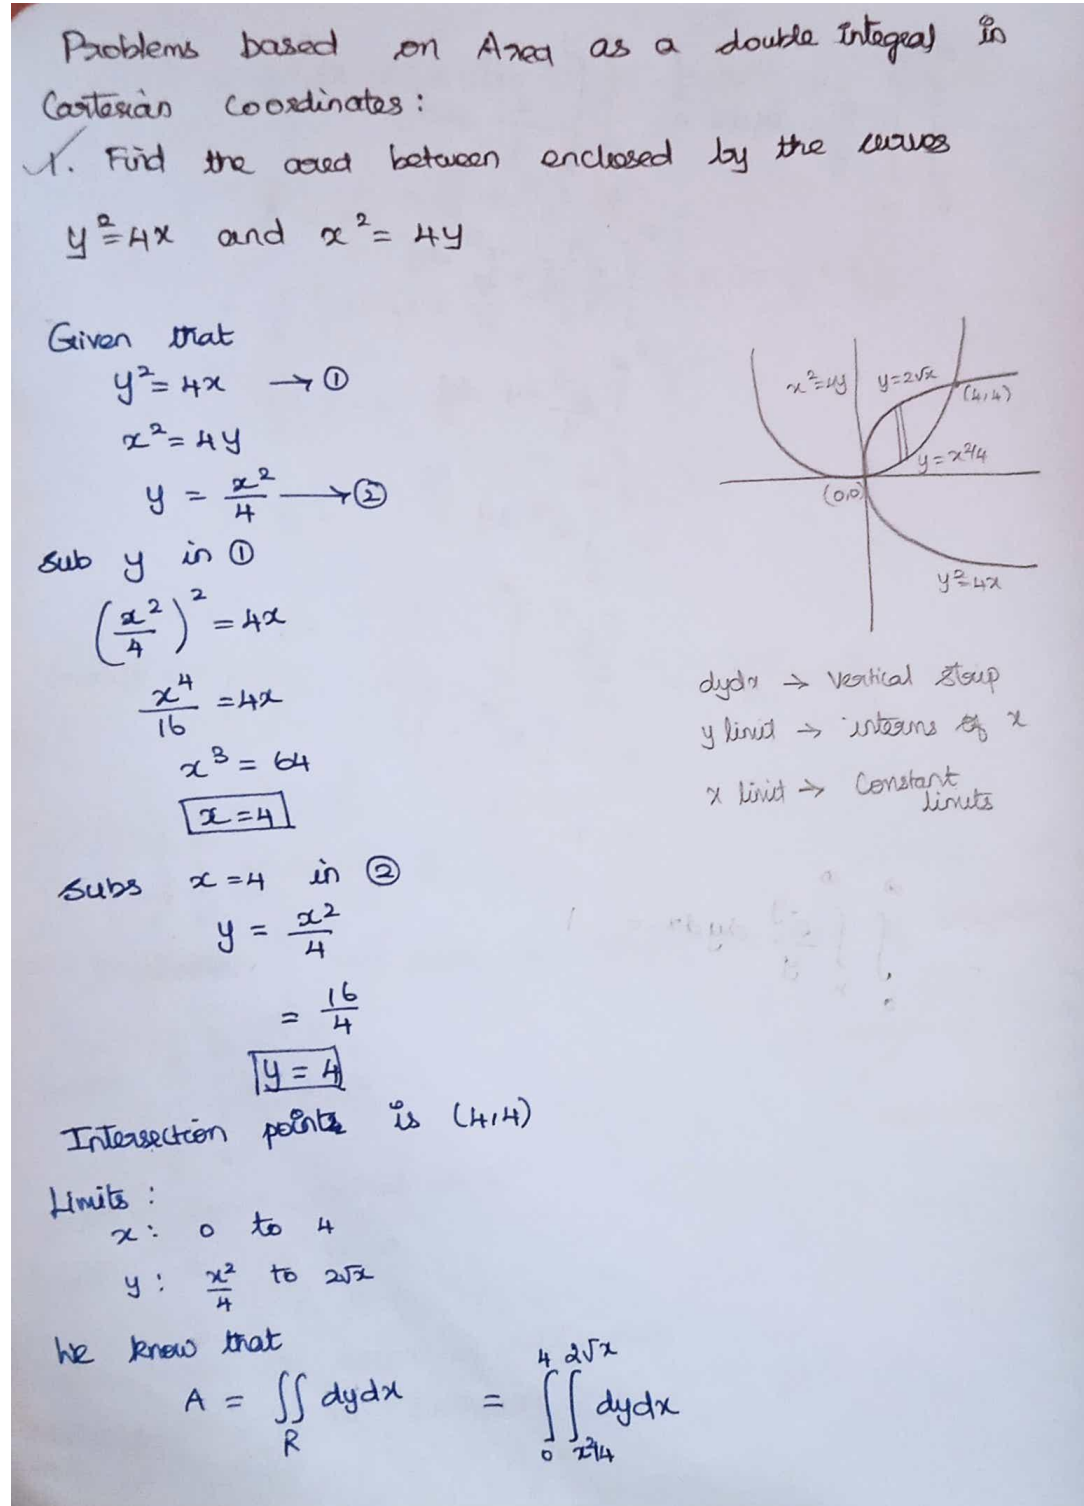 Problems based on Area as a double integral in
Cartesian coordinates:
1. Find the area between enclosed by the curves
y²=4x and x²=4y
Given that
y²=4x → ①
x²=4y
y = x²/4 → ②
Sub y in ①
(x²/4)² = 4x
x⁴/16 = 4x
x³ = 64
x=4
Subs x=4 in ②
y = x²/4
= 16/4
y=4
Intersection points is (4,4)
Limits:
x: 0 to 4
y: x²/4 to 2√x
We know that
A = ∬_R dydx = ∫_0^4 ∫_{x²/4}^{2√x} dydx
x²=4y
y=2√x
(4,4)
y=x²/4
(0,0)
y²=4x
dydx → Vertical strip
y limit → interms of x
x limit → Constant
limits